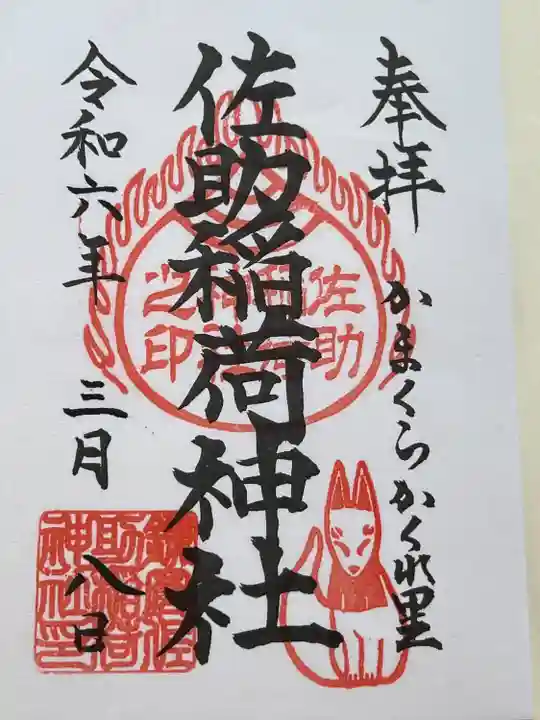 奉拝
かまくらかくれ里
佐助稲荷神社
令和六年 三月 八日
佐助稲荷神社之印